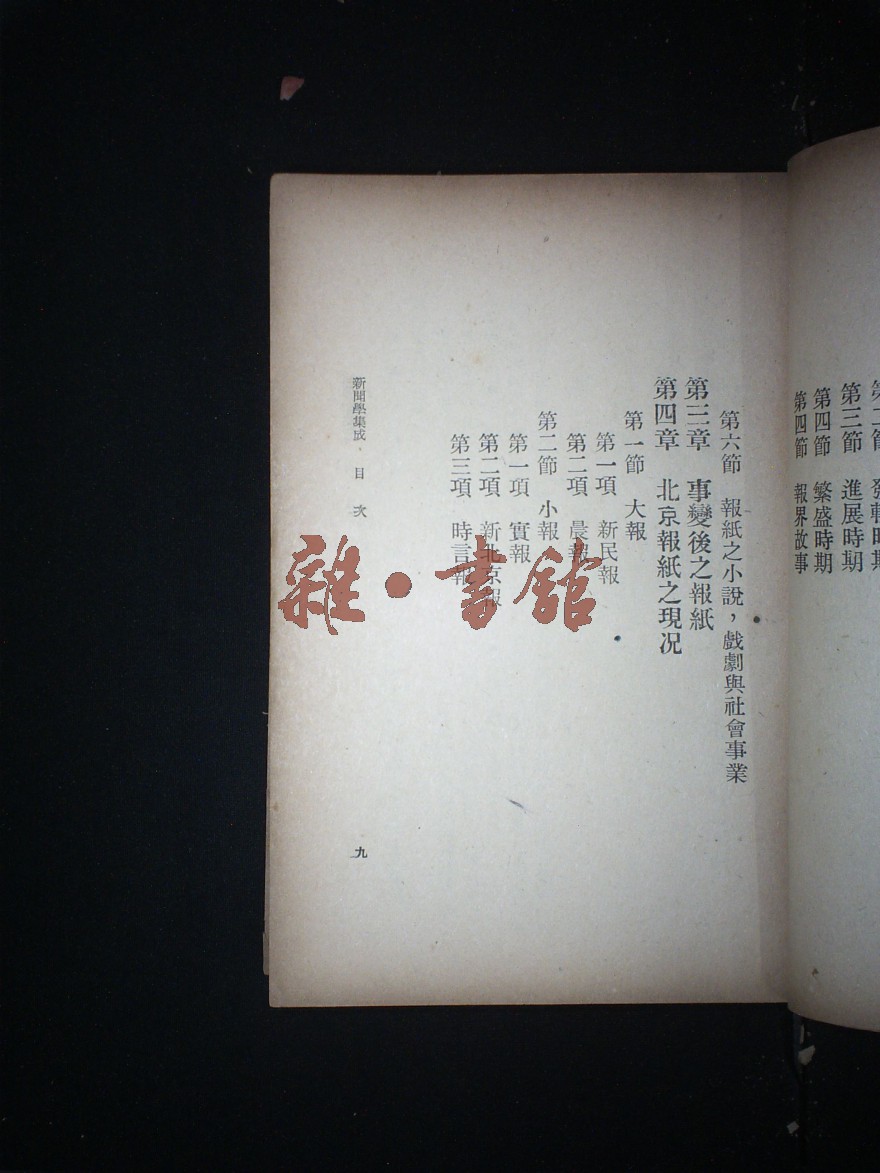 第三節　進展時期
第四節　繁盛時期
第四節　報界故事
第六節　報紙之小說，戲劇與社會事業
第三章　事變後之報紙
第四章　北京報紙之現況
第一節　大報
第一項　新民報
第二項　晨報
第二節　小報
第一項　實報
第二項　新北京報
第三項　時言報
新聞學集成・目次
九
雜・書館